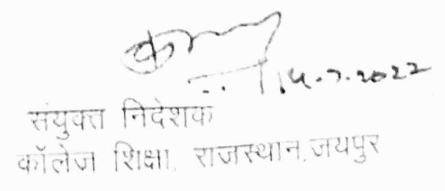 14.7.2022
संयुक्त निदेशक
कॉलेज शिक्षा, राजस्थान, जयपुर